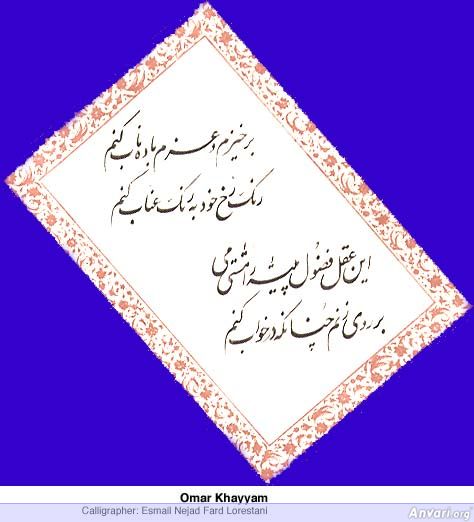 برخیزم و عزم باده ناب کنم
رنگ رخ خود به رنگ عناب کنم
این عقل فضول پیشه را مشتی می
بر روی زنم چنانکه در خواب کنم
Omar Khayyam
Calligrapher: Esmail Nejad Fard Lorestani
Anvari.org